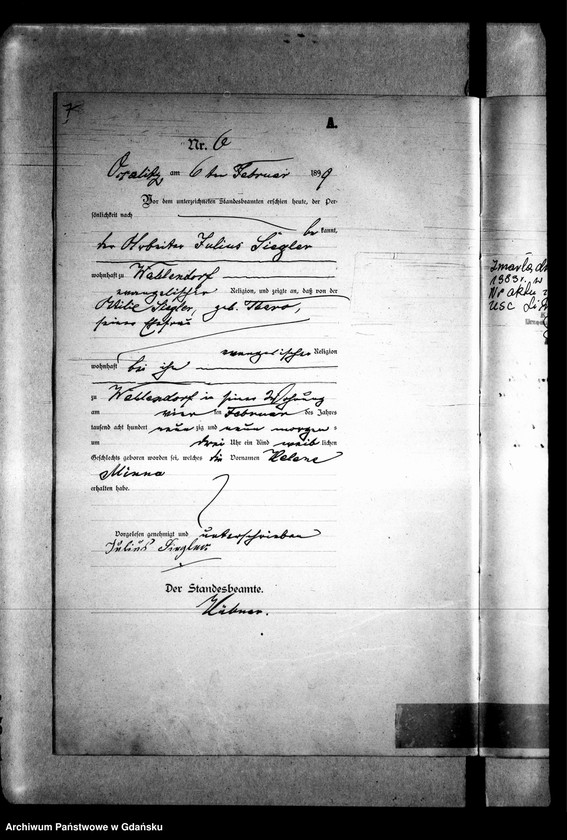 7
A.
Nr. 6
Osalitz am 6ten Februar 1899
Vor dem unterzeichneten Standesbeamten erschien heute, der Per-
sönlichkeit nach
be kannt,
der Arbeiter Julius Siegler
wohnhaft zu Wahlendorf
evangelischer Religion, und zeigte an, daß von der
Siegler, geb.
seiner Ehefrau
evangelischer Religion
wohnhaft bei ihm
zu Wahlendorf in seiner Wohnung
am vier ten Februar des Jahres
tausend acht hundert neun zig und neun morgen s
um drei Uhr ein Kind weib lichen
Geschlechts geboren worden sei, welches die Vornamen Helene
Minna
erhalten habe.
Vorgelesen genehmigt und unterschrieben
Julius Siegler
Der Standesbeamte.
Hübner.
Zmarła
1983 r. w
Nr aktu
USC
Archiwum Państwowe w Gdańsku